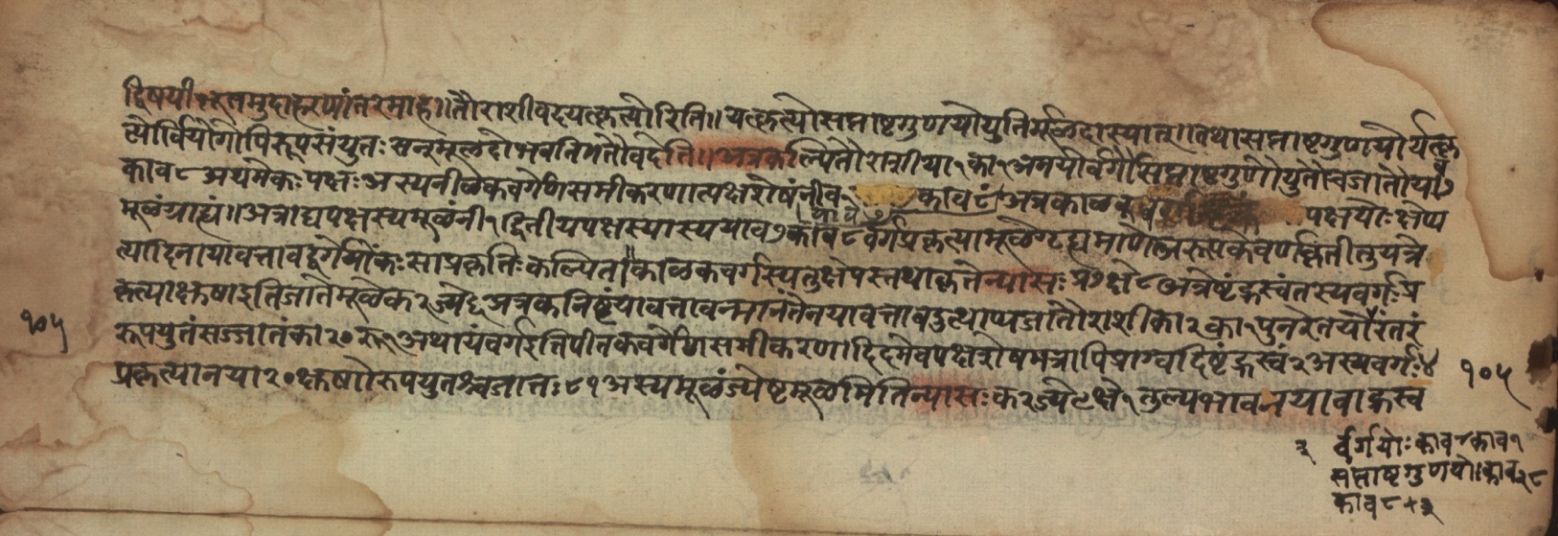 द्विषयीभूतमुदाहरणांतरमाह॥तौराशीवदयत्कृत्योरिति॥यत्कृत्योसप्ताष्टगुणयोर्युतिर्मूळदास्यात्॥तथासप्ताष्टगुणयोर्यत्कृ
त्योर्वियोगोपिरूपसंयुतःसन्मूलदोभवतिभतौवदेति॥अत्रकल्पितौराशीया१का१अनयोर्वर्गौसप्ताष्टगुणौयुतौचजातौयाव७
काव८अयमेकःपक्षःअस्यनीळकवर्गेणसमीकरणात्पक्षशेषंनीव१ काव८अत्रकाळक पक्षयोःक्षेप्य
मूळंग्राह्यं॥अत्राद्यपक्षस्यमूळंनी१द्वितीयपक्षस्यास्ययाव७काव८वर्गप्रकृत्यामूळेगृह्यमाणेअरूपकेवर्णकृतीतुयत्रे
त्यादिनायावत्तावद्वर्गेयोंकःसाप्रकृतिःकल्पिता॥काळकवर्गस्यतुक्षेपस्तथाकृतेन्यासःप्र७क्षे८अत्रेष्टंह्रस्वंतस्यवर्गःप्र
कृत्याक्षुण्णइतिजातेमूळेक२ज्ये६अत्रकनिष्ठंयावत्तावन्मानंतेनयावत्तावदुत्थाप्यजातौराशीका२का१पुनरेतयोरंतरं
रूपयुतंसज्जातंका२०रू१अथायंवर्गइतिपीतकवर्गेणसमीकरणादिदमेवपक्षशेषमत्रापिप्राग्वदिष्टंह्रस्वं२अस्यवर्गः४
प्रकृत्यानया२०क्षुण्णोरूपयुतश्चजातः८१अस्यमूळंज्येष्टमूळमितिन्यासःक२ज्ये९क्षे१तुल्यभावनयावाह्रस्व
१०५
१०५
र्वर्गयोःकाव४काव१
सप्ताष्टगुणयो॥काव२८
काव८